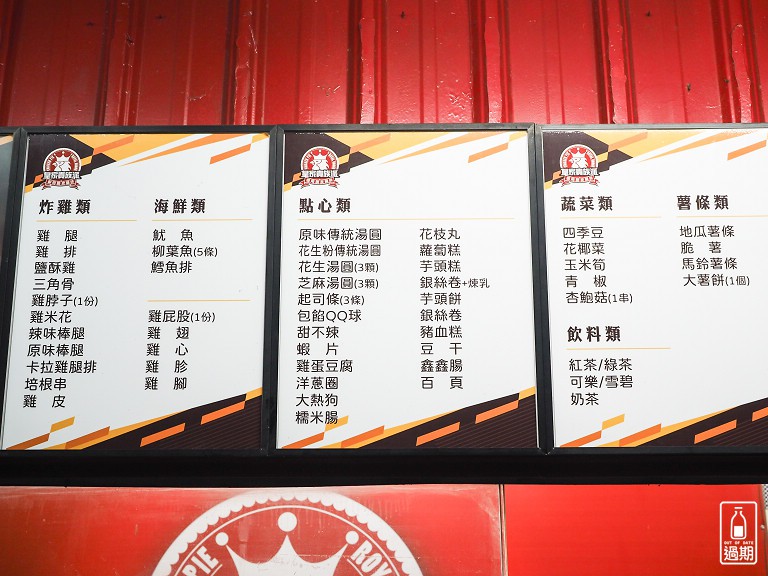 皇家貴族派
炸雞類
雞 腿
雞 排
鹽酥雞
三角骨
雞脖子(1份)
雞米花
辣味棒腿
原味棒腿
卡拉雞腿排
培根串
雞 皮
海鮮類
魷 魚
柳葉魚(5條)
鱈魚排
雞屁股(1份)
雞 翅
雞 心
雞 胗
雞 腳
皇家貴族派
點心類
原味傳統湯圓
花生粉傳統湯圓
花生湯圓(3顆)
芝麻湯圓(3顆)
起司條(3條)
包餡QQ球
甜不辣
蝦 片
雞蛋豆腐
洋蔥圈
大熱狗
糯米腸
花枝丸
蘿蔔糕
芋頭糕
銀絲卷+煉乳
芋頭餅
銀絲卷
豬血糕
豆 干
鑫鑫腸
百 頁
皇家貴族派
蔬菜類
四季豆
花椰菜
玉米筍
青 椒
杏鮑菇(1串)
薯條類
地瓜薯條
脆 薯
馬鈴薯條
大薯餅(1個)
飲料類
紅茶/綠茶
可樂/雪碧
奶茶
PIE ROY
OUT OF DATE
過期